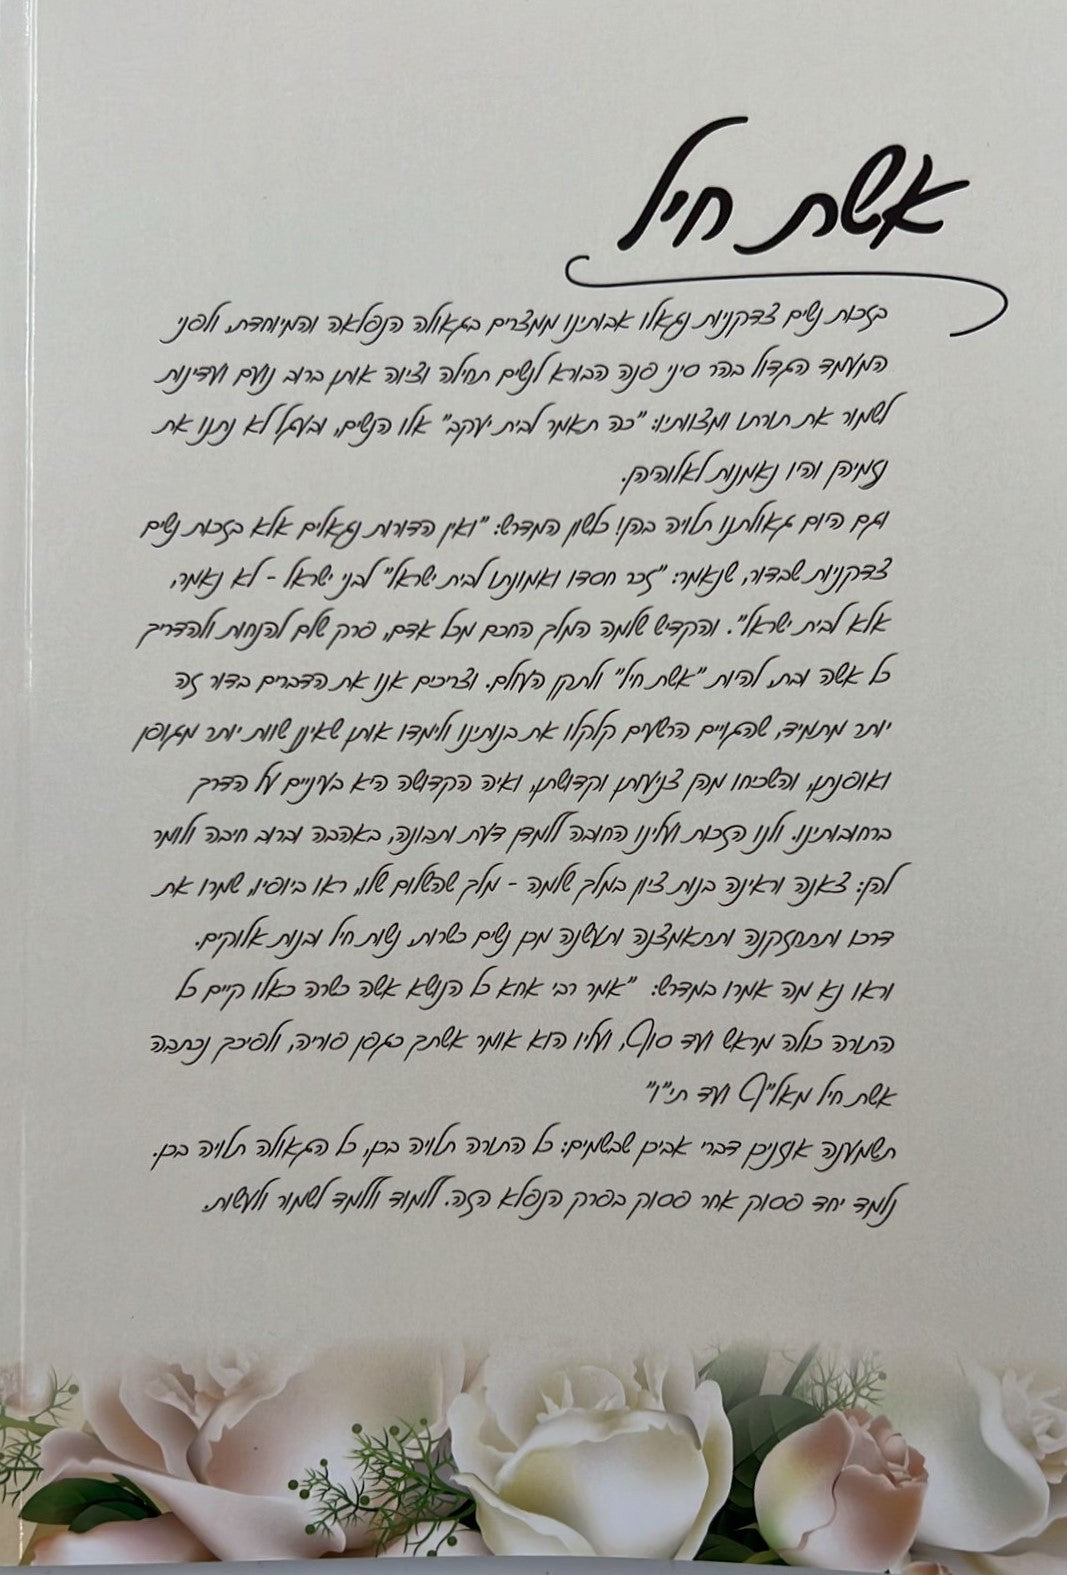 אשת חיל
בזכות נשים צדקניות נגאלו אבותינו ממצרים בגאולה הנפלאה והמיוחדת, ולפני
המעמד הגדול בהר סיני פנה הבורא לנשים תחילה וציוה אותן ברוב נועם ועדינות
לשמור את תורתו ומצוותיו: "כה תאמר לבית יעקב" אלו הנשים, ובעגל לא נתנו את
נזמיהן והיו נאמנות לאלוהיהן.
וגם היום גאולתנו תלויה בהן! כלשון המדרש: "ואין הדורות נגאלים אלא בזכות נשים
צדקניות שבדור, שנאמר: "זכר חסדו ואמונתו לבית ישראל" לבני ישראל - לא נאמר,
אלא לבית ישראל". והקדיש שלמה המלך החכם מכל אדם, פרק שלם להנחות ולהדריך
כל אשה ובת, להיות "אשת חיל" ולתקן העולם. וצריכים אנו את הדברים בדור זה
יותר מתמיד, שהגויים הרשעים קלקלו את בנותינו ולימדו אותן שאינן שוות יותר מגופן
ואופנתן, והשכיחו מהן צניעותן וקדושתן, ואיה הקדושה היא בעיניים על הדרך
ברחובותינו. ולנו הזכות ועלינו החובה ללמדן דעת ותבונה, באהבה וברוב חיבה ולומר
להן: צאנה וראינה בנות ציון במלך שלמה - מלך שהשלום שלו, ראו ביופיו, שמרו את
דרכו ותתחזקנה ותתאמצנה ותעשנה מכן נשים כשרות, נשות חיל ובנות אלוקים.
וראו נא מה אמרו במדרש: "אמר רבי אחא כל הנושא אשה כשרה כאלו קיים כל
התורה כולה מראש ועד סוף, ועליו הוא אומר אשתך כגפן פוריה, ולפיכך נכתבה
אשת חיל מאל"ף ועד תי"ו"
תשמענה אוזניכן דברי אביכן שבשמים: כל התורה תלויה בכן, כל הגאולה תלויה בכן.
נלמד יחד פסוק אחר פסוק בפרק הנפלא הזה. ללמוד וללמד לשמור ולעשות.